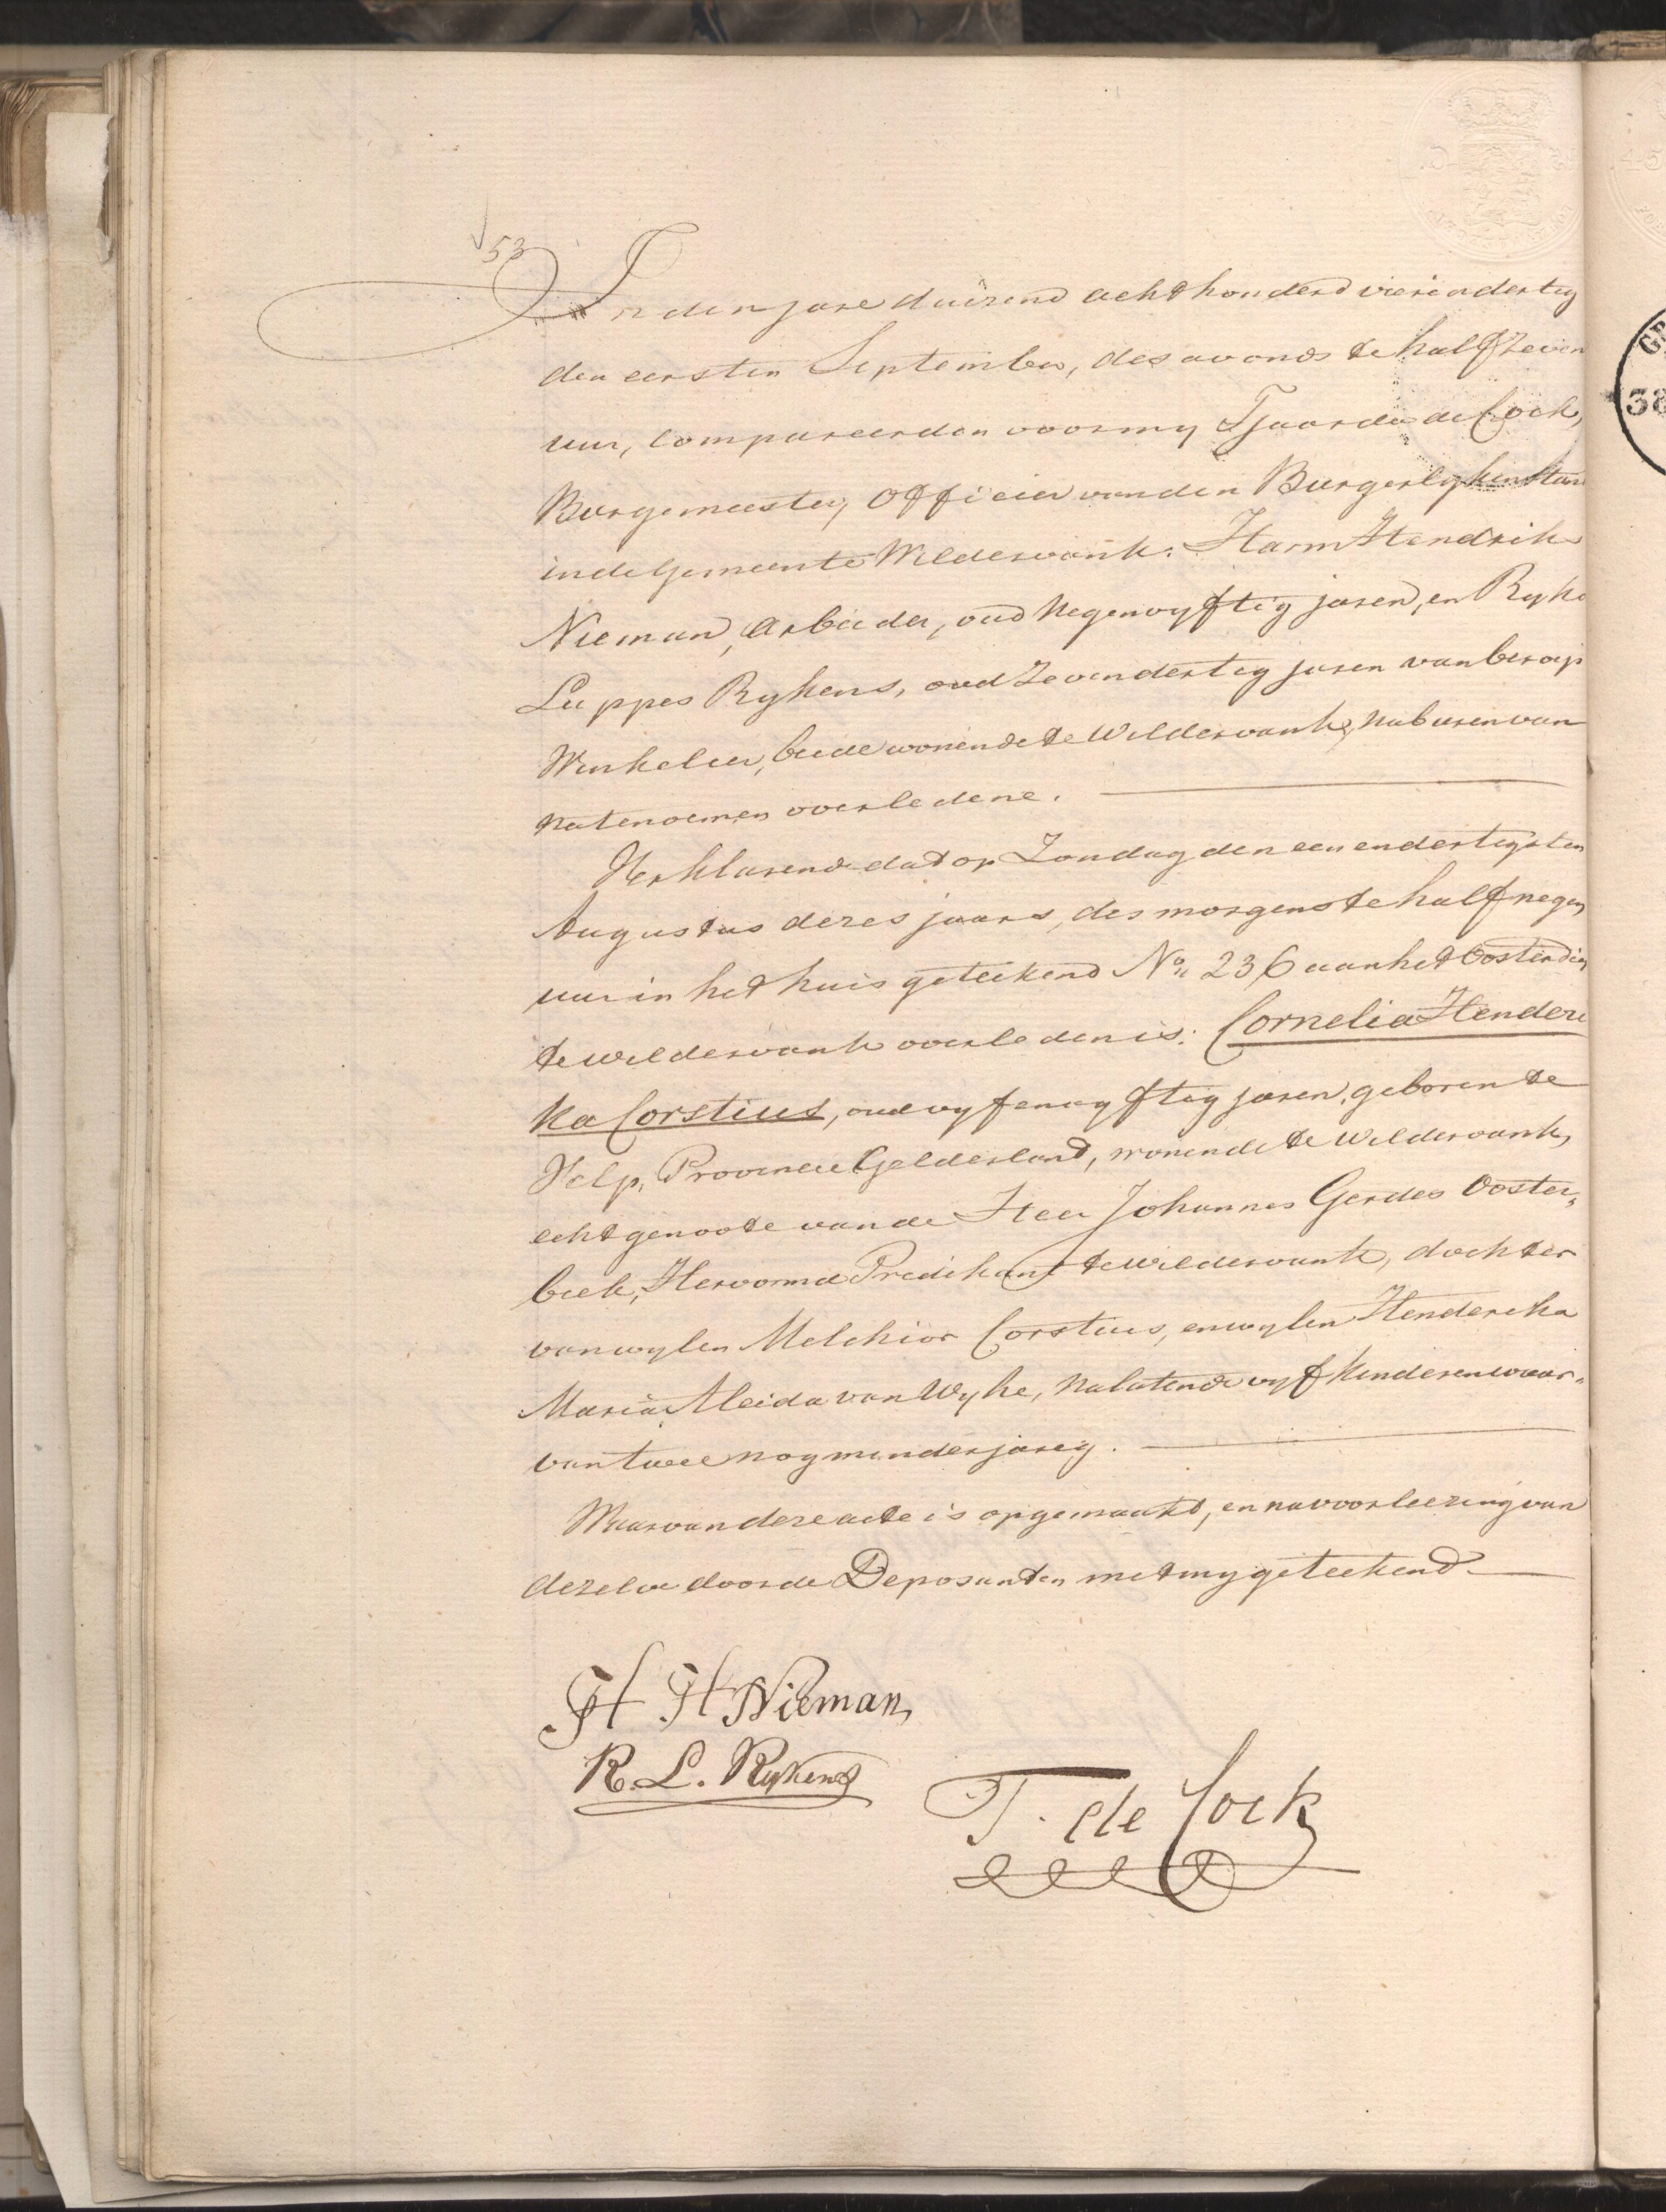 53
In den jare duizend achthonderd vierendertig
den eersten September, des avonds te half zeven
uur, compareerden voor my Tjaarda de Cock,
Burgemeester, Officier van den Burgerlyken Stand
in de Gemeente Wildervank: Harm Hendrik
Nieman, Arbeider, oud Negenvyftig jaren, en Ryko
Luppes Rykens, oud Zevendertig jaren van beroep
Winkelier, beide wonende te Wildervank, naburen van
natenoemen overledene.
Verklarende dat op Zondag den een endertigsten
Augustus dezes jaars, des morgens te half negen
uur in het huis geteekend No. 236 aan het Oosterdiep
te Wildervank overleden is: Cornelia Henderi
ka Corstius, oud vyfenvyftig jaren, geboren te
Velp, Provincie Gelderland, wonende te Wildervank,
echtgenoote van de Heer Johannes Gerdes Ooster,
beek, Hervormd Predikant te Wildervank, dochter
van wylen Melchior Corstius, en wylen Henderika
Maria Aleida van Wyhe, nalatende vyf kinderen waar,
van twee nog minderjarig.
Waarvan deze acte is opgemaakt, en na voorleezing van
dezelve door de Deposanten met my geteekend
H H Nieman
R. L. Rykens
T. de Cock
38